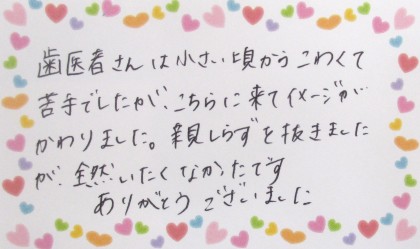 歯医者さんは小さい頃からこわくて
苦手でしたが、こちらに来てイメージが
かわりました。親しらずを抜きました
が、全然いたくなかったです
ありがとうございました